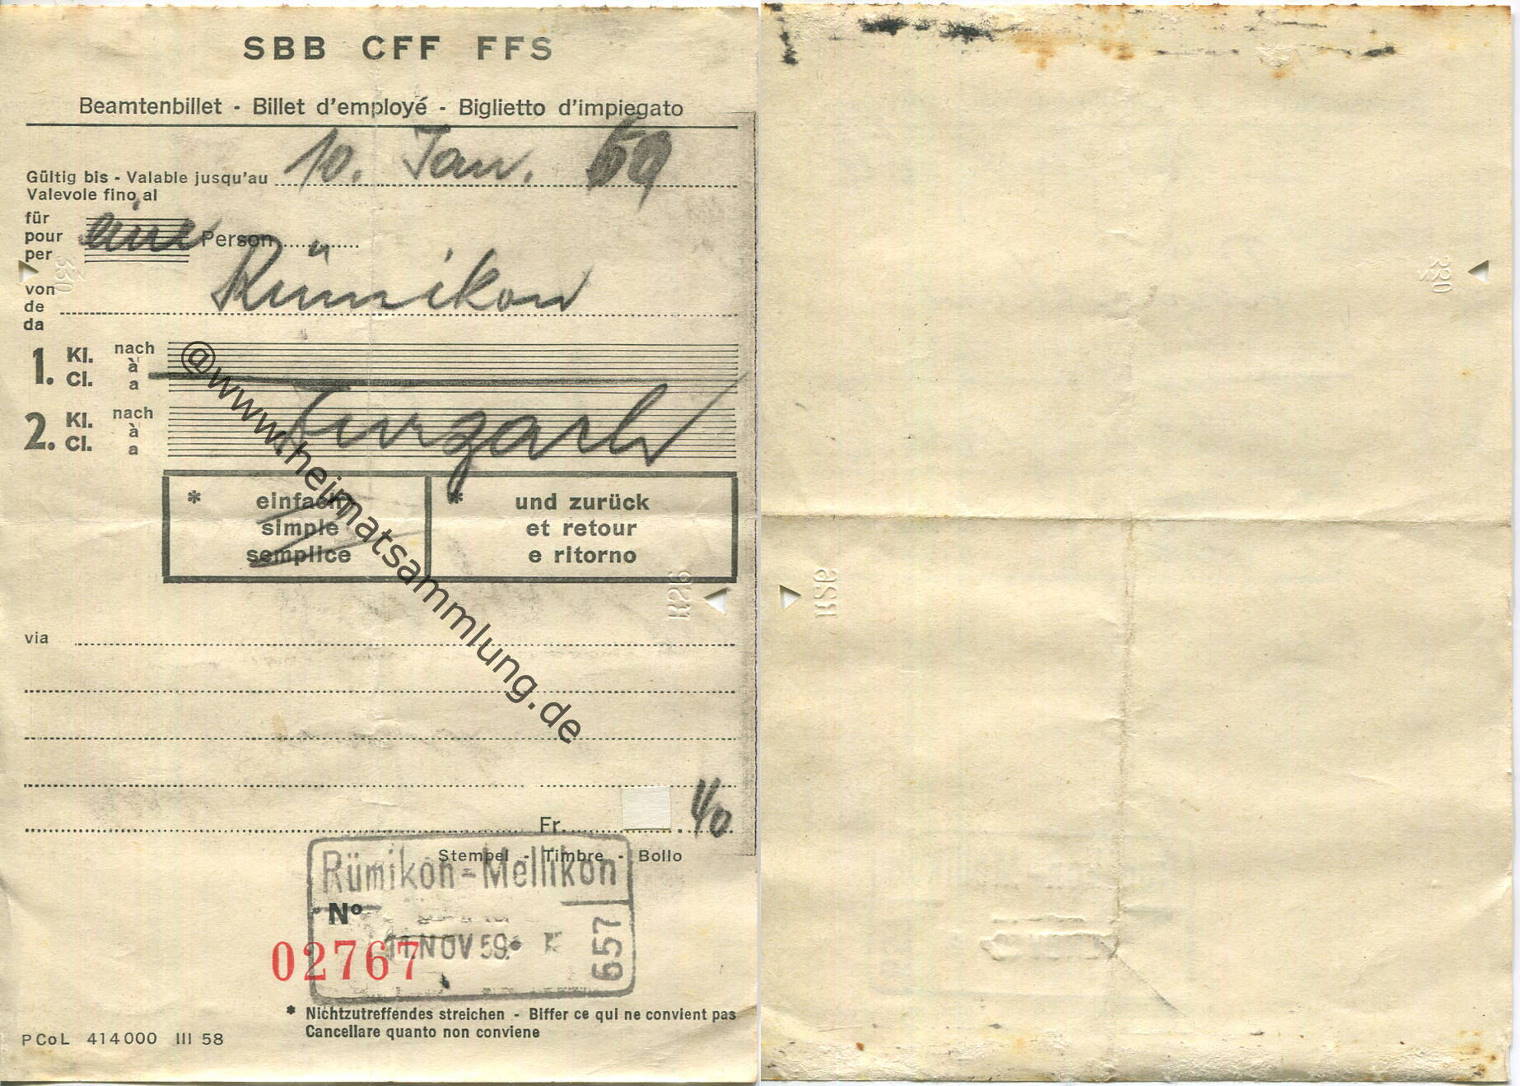 SBB CFF FFS
Beamtenbillet - Billet d'employé - Biglietto d'impiegato
Gültig bis - Valable jusqu'au 10. Jan. 60
Valevole fino al
für
pour eine Person
per
von
de Rümikon
da
1. Kl. Cl. nach à a
2. Kl. Cl. nach à a Zurzach
* einfach
simple
semplice
* und zurück
et retour
e ritorno
via
Fr. . 40
Stempel - Timbre - Bollo
Rümikon-Mellikon
Nº
02767
11.NOV 59.
657
* Nichtzutreffendes streichen - Biffer ce qui ne convient pas
Cancellare quanto non conviene
PCoL 414000 III 58
@www.heimatsammlung.de